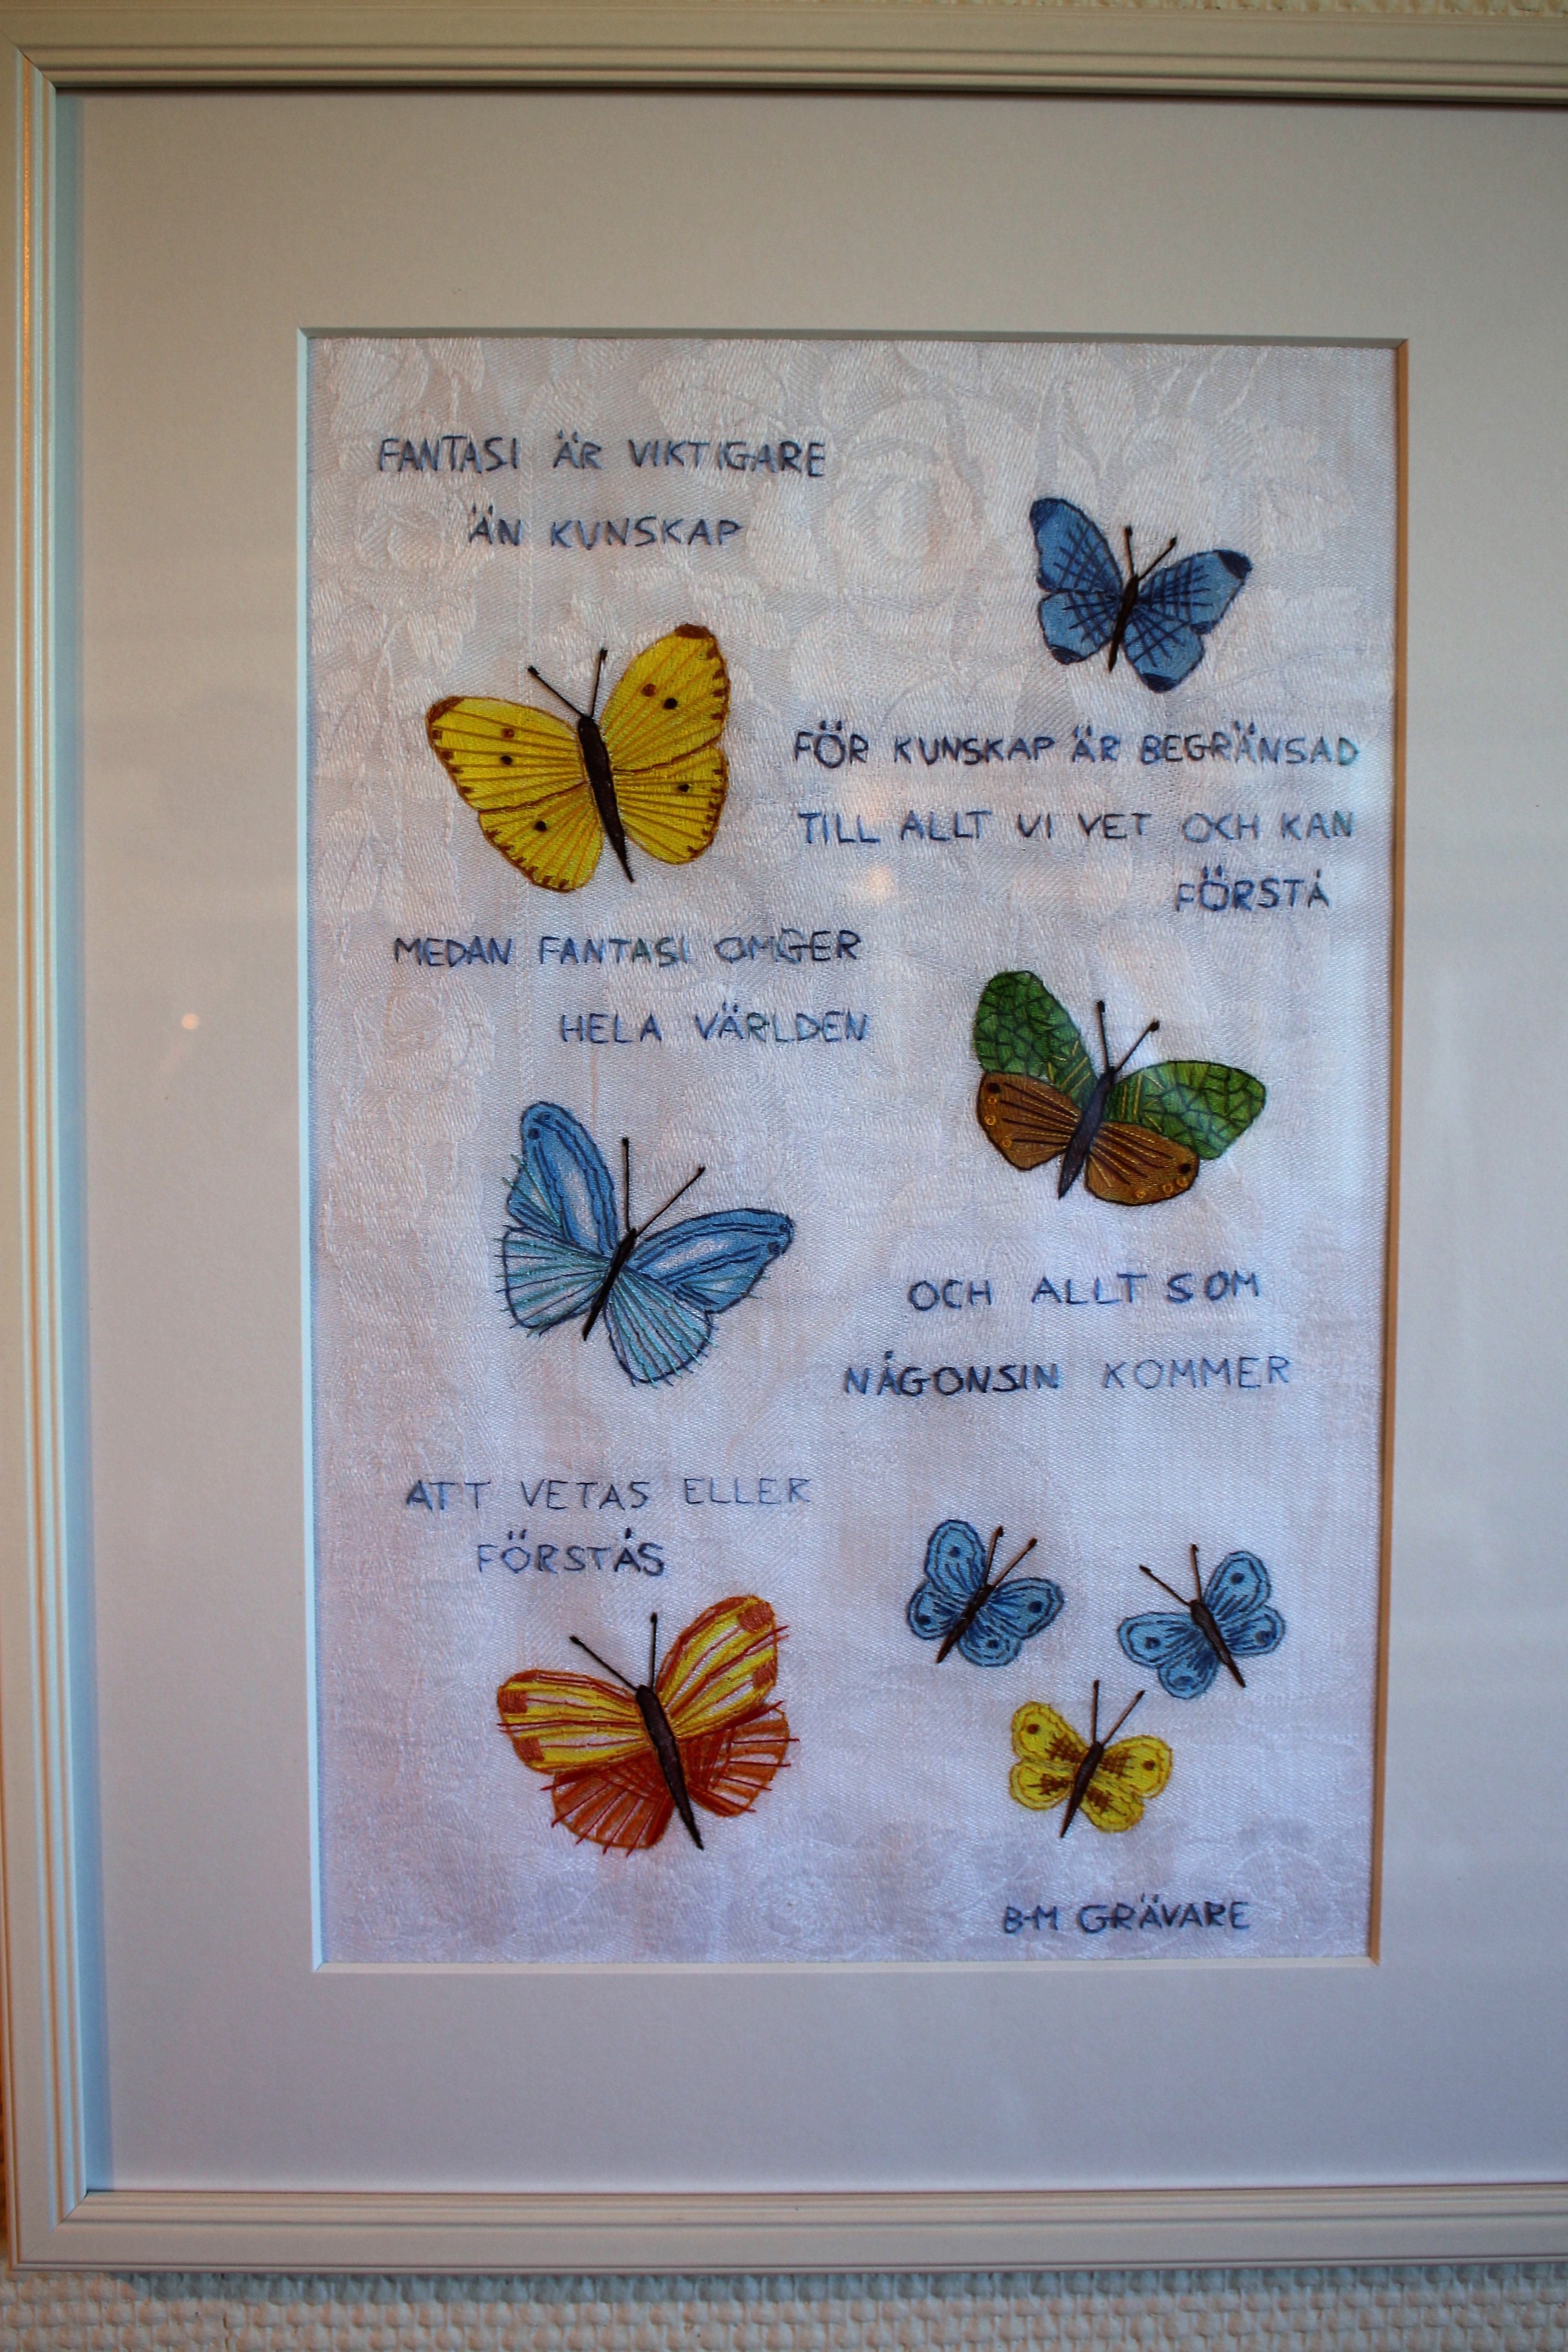 FANTASI ÄR VIKTIGARE
ÄN KUNSKAP
FÖR KUNSKAP ÄR BEGRÄNSAD
TILL ALLT VI VET OCH KAN
FÖRSTÅ
MEDAN FANTASI OMGER
HELA VÄRLDEN
OCH ALLT SOM
NÅGONSIN KOMMER
ATT VETAS ELLER
FÖRSTÅS
B-M GRÄVARE